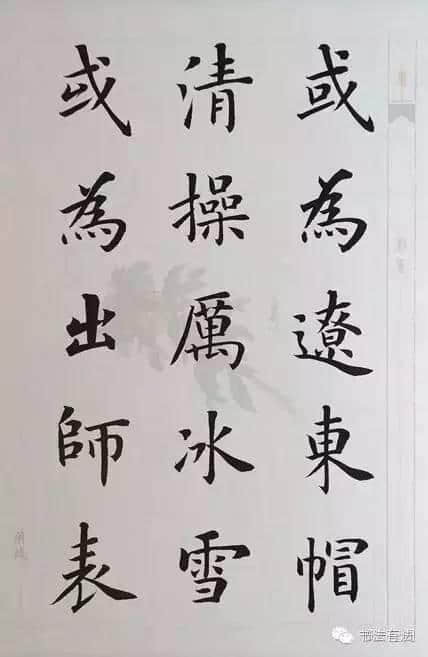 或為遼東帽
清操厲冰雪
或為出師表
书法有责